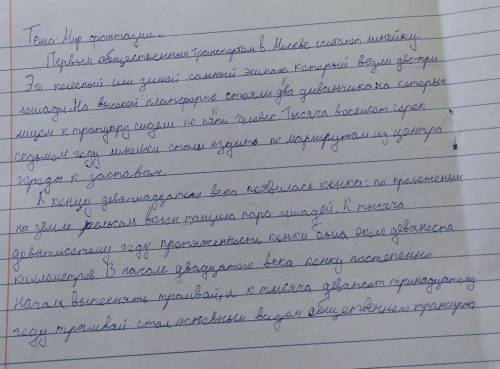 Тема: Мир фантазии.
Первым общественным транспортом в Москве считают линейку.
Это колесный или зимой санный экипаж который везли две-три
лошади. На высокой платформе стояли два диванчика на которых
лицом к тротуару сидели по пять человек Тысяча восемьсот сорок
седьмом году линейки стали ездить по маршрутам из центра
города к заставам.
К концу девятнадцатого века появилась конка: по проложеным
на земле рельсам вагон тащила пара лошадей. К тысяча
девятисотому году протяженность конки была около девяноста
километров. В начале двадцатого века конку постепенно
начал вытеснять трамвай, и к тысяча девятсот тринадцатому
году трамвай стал основным видом общественного транспорта